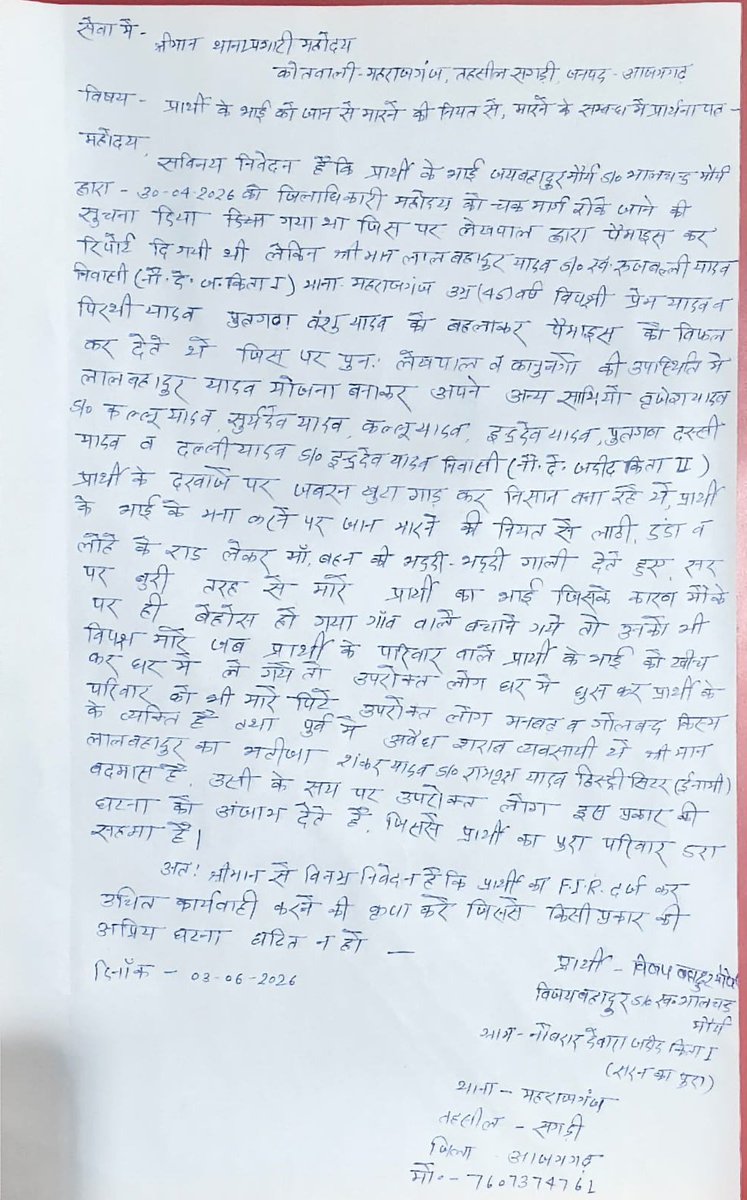 सेवा में -
श्रीमान थानाप्रभारी महोदय
कोतवाली - महराजगंज, तहसील सगड़ी, जनपद - आजमगढ़
विषय - प्रार्थी के भाई को जान से मारने की नियत से, मारने के सम्बन्ध में प्रार्थना पत्र -
महोदय,
सविनय निवेदन है कि प्रार्थी के भाई जयबहादुर मौर्य S/o भालचन्द मौर्य
द्वारा - 30-04-2026 को जिलाधिकारी महोदय को चक मार्ग रोके जाने की
सुचना दिया गया था जिस पर लेखपाल द्वारा पैमाइस कर
रिपोर्ट दि गयी थी लेकिन श्रीमान लालबहादुर यादव S/o स्व. रुजबल्ली यादव
निवासी (नौ. दे. ज. किता I) थाना - महराजगंज उम्र (45) वर्ष विपक्षी प्रेम यादव व
पिरथी यादव पुत्रगण वंशु यादव को बहलाकर पैमाइस को विफल
कर देते थे जिस पर पुन: लेखपाल व कानुनगो की उपस्थिति मे
लालबहादुर यादव योजना बनाकर अपने अन्य साथियों बृजेश यादव
S/o कल्लू यादव, सुर्यदेव यादव, कल्लू यादव, इन्द्रदेव यादव, पुत्रगण दस्सी
यादव व दल्ली यादव S/o इन्द्रदेव यादव निवासी (नौ. दे. जदीद किता II)
प्रार्थी के दरवाजे पर जबरन खुटा गाड़ कर निसान बना रहे थे, प्रार्थी
के भाई के मना करने पर जान मारने की नियत से लाठी, डंडा व
लोहे के राड लेकर माँ, बहन की भद्दी-भद्दी गाली देते हुए, सर
पर बुरी तरह से मारे प्रार्थी का भाई जिसके कारण मौके
पर ही बेहोस हो गया गाँव वाले बचाने गये तो उनको भी
विपक्ष मारे जब प्रार्थी के परिवार वाले प्रार्थी के भाई को खीच
कर घर मे ले गये तो उपरोक्त लोग घर मे घुस कर प्रार्थी के
परिवार को भी मारे पिटे उपरोक्त लोग मनबढ़ व गोलबद किस्म
के व्यक्ति है तथा पुर्व मे अवैध शराब व्यवसायी थे श्रीमान
लालबहादुर का भतीजा शंकर यादव S/o रामवृक्ष यादव हिस्ट्री सिटर (ईनामी)
बदमास है, उसी के सय पर उपरोक्त लोग इस प्रकार की
घटना को अंजाम देते है, जिससे प्रार्थी का पुरा परिवार डरा
सहमा है।
अत: श्रीमान से विनम्र निवेदन है कि प्रार्थी का F.I.R. दर्ज कर
उचित कार्यवाही करने की कृपा करे जिससे किसी प्रकार की
अप्रिय घटना घटित न हो —
दिनाँक - 03-06-2026
प्रार्थी - विजय बहादुर मौर्य
विजयबहादुर S/o स्व. भालचन्द
मौर्य
ग्राम - नौबरार देवारा जदीद किता I
(सरन का पुरा)
थाना - महराजगंज
तहसील - सगड़ी
जिला - आजमगढ़
मो. - 7607374761